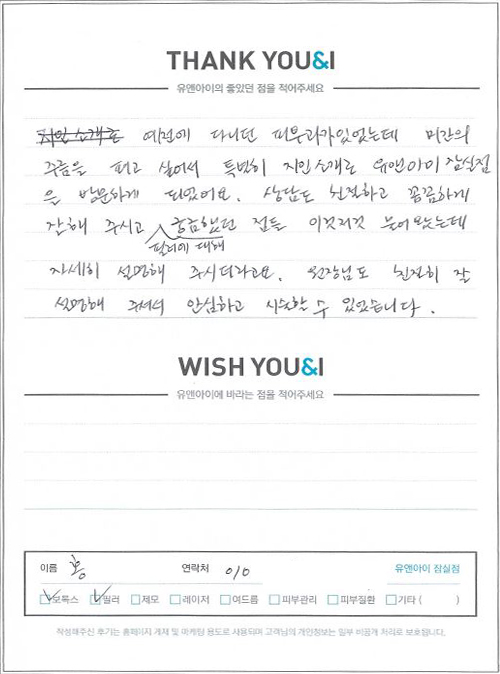 THANK YOU&I
유앤아이의 좋았던 점을 적어주세요
지인 소개로 예전에 다니던 피부과가 있었는데 미간의
주름을 펴고 싶어서 특별히 지인소개로 유앤아이 잠실점
을 방문하게 되었어요. 상담도 친절하고 꼼꼼하게
잘해 주시고 궁금했던 점들 이것저것 물어봤는데
필러에 대해
자세히 설명해 주시더라고요. 원장님도 친절히 잘
설명해 주셔서 안심하고 시술할 수 있었습니다.
WISH YOU&I
유앤아이에 바라는 점을 적어주세요
이름 홍 연락처 010 유앤아이 잠실점
보톡스 필러 제모 레이저 여드름 피부관리 피부질환 기타 ( )
작성해주신 후기는 홈페이지 게재 및 마케팅 용도로 사용되며 고객님의 개인정보는 일부 비공개 처리로 보호됩니다.